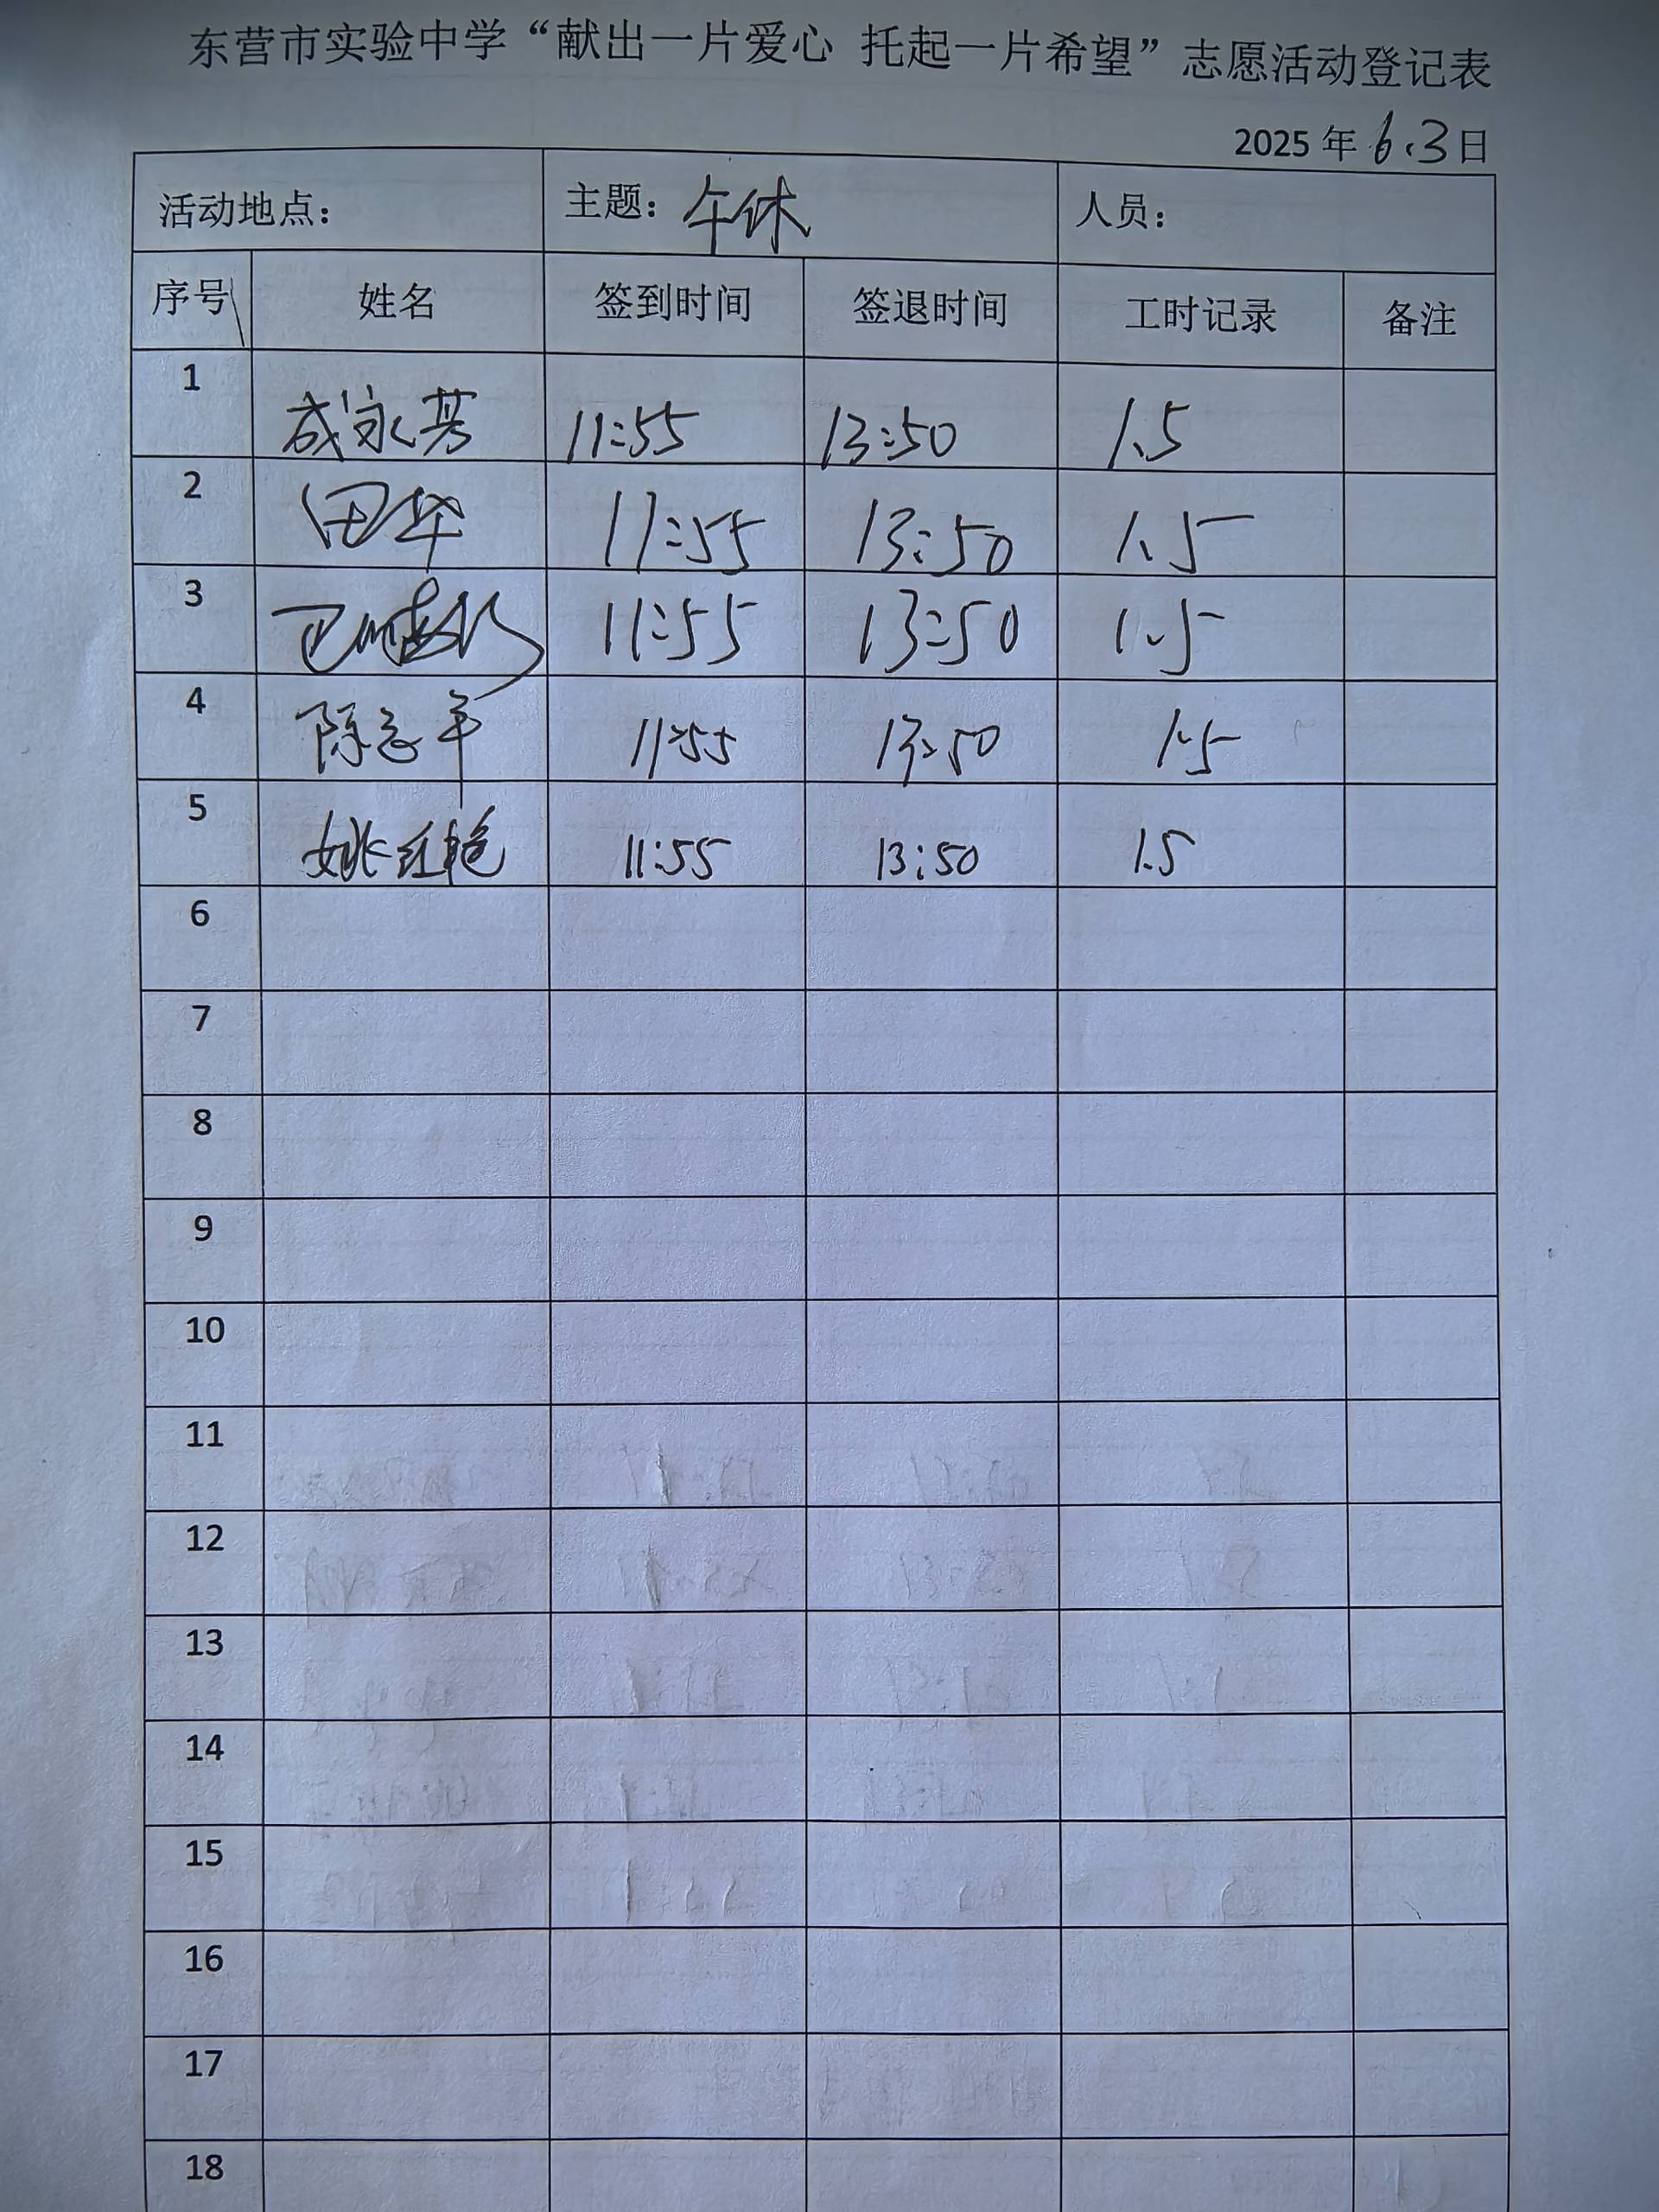 东营市实验中学“献出一片爱心 托起一片希望”志愿活动登记表
2025 年 6.3 日
活动地点： 主题：午休 人员：
序号 姓名 签到时间 签退时间 工时记录 备注
1 成永芳 11:55 13:50 1.5
2 田华 11:55 13:50 1.5
3 11:55 13:50 1.5
4 陈志军 11:55 13:50 1.5
5 姚红艳 11:55 13:50 1.5
6
7
8
9
10
11
12
13
14
15
16
17
18